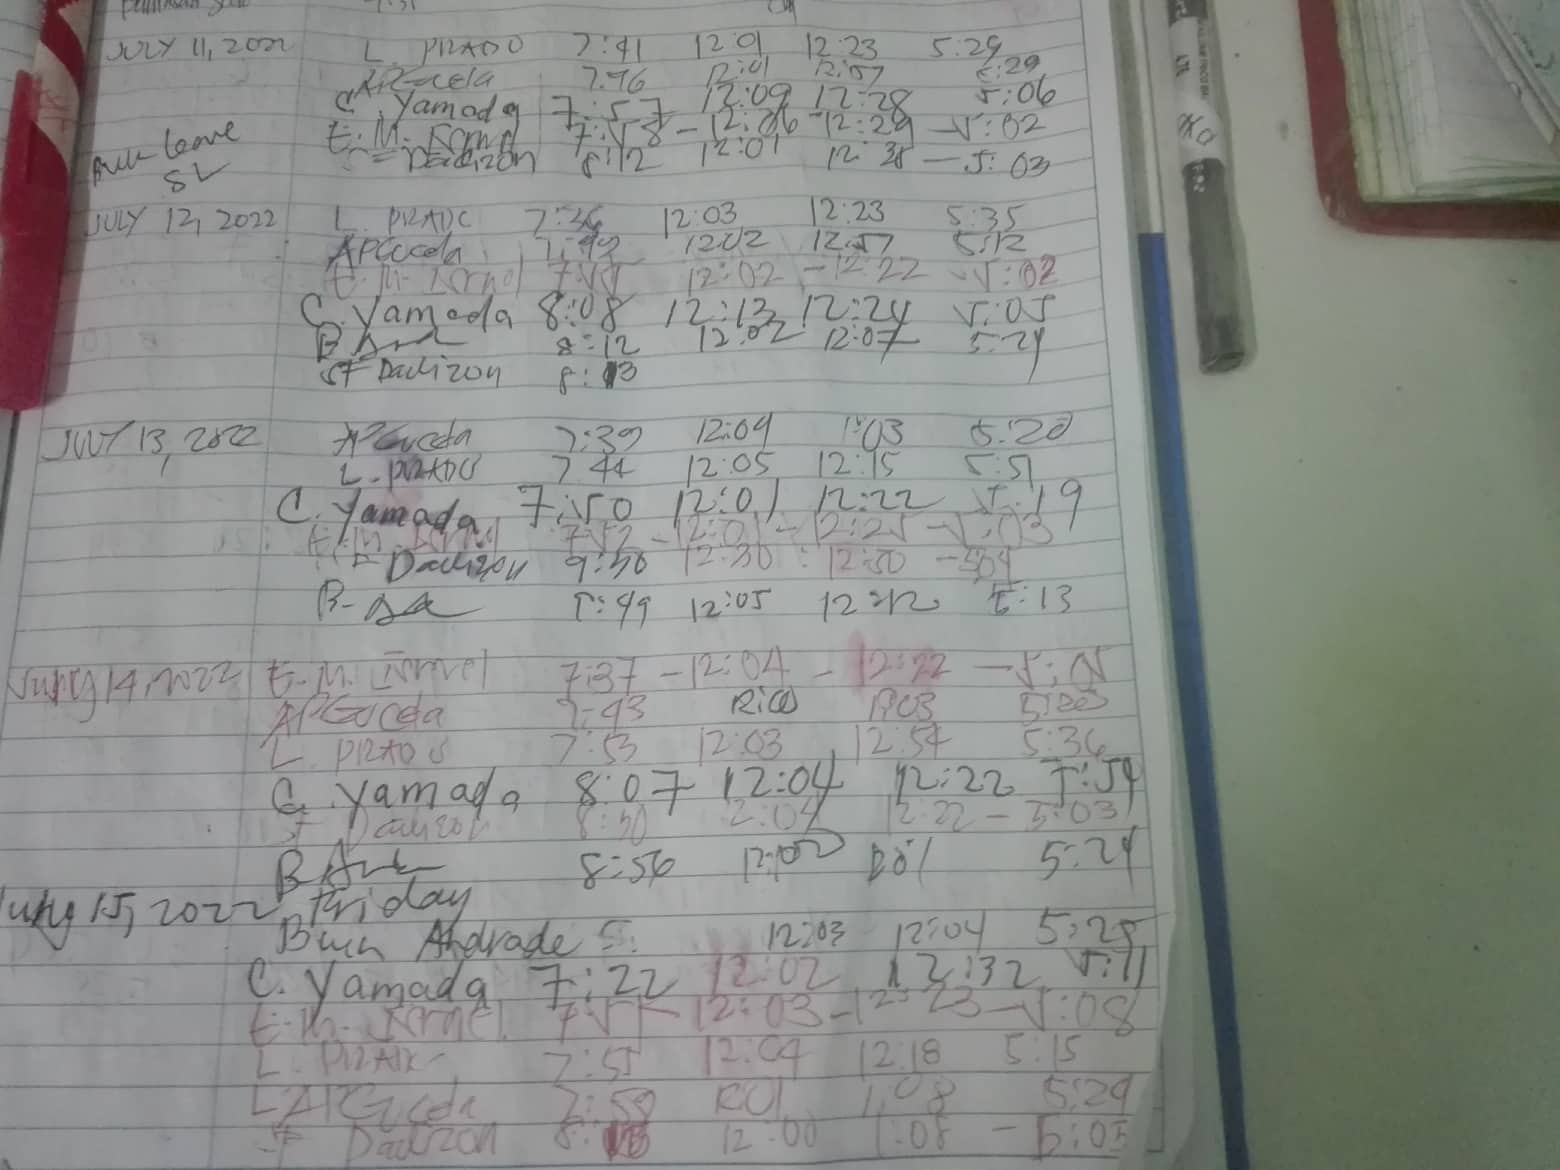 JULY 11, 2022 L. PRADO 7:41 12:01 12:23 5:29
APGuceda 7:46 12:01 12:57 5:29
C. Yamada 7:57 12:09 12:28 5:06
E. M. 7:58 - 12:06 - 12:29 - 5:02
Leave Dadizon 8:12 12:01 12:38 - 5:03
SL
JULY 12, 2022 L. PRADO 7:26 12:03 12:23 5:35
APGuceda 7:49 12:02 12:57 5:12
E. M. 7:55 12:02 - 12:22 - 5:02
C. Yamada 8:08 12:13 12:24 5:05
B 8:12 12:02 12:07 5:24
SF Dadizon 8:13
JULY 13, 2022 APGuceda 7:39 12:04 1:03 5:20
L. PRADO 7:44 12:05 12:15 5:51
C. Yamada 7:50 12:01 12:22 5:19
E. M. 7:52 - 12:01 - 12:25 - 5:03
Dadizon 9:30 12:30 : 12:50 - 504
B- 12:05 12:12 5:13
July 14, 2022 E. M. 7:37 - 12:04 - 12:22 - 5:05
APGuceda 7:43
L. PRADO 7:53 12:03 12:54 5:36
C. Yamada 8:07 12:04 12:22 5:54
SF Dadizon 8:30 12:04 12:22 - 5:03
B 8:56 5:24
July 15, 2022 Friday
Andrade 12:03 12:04 5:25
C. Yamada 7:22 12:02 12:32 5:11
E. M. 12:03 - 12:23 - 5:08
L. PRADO 7:55 12:04 12:18 5:15
APGuceda 7:59 1:08 5:29
SF Dadizon 12:00 1:08 - 5:05